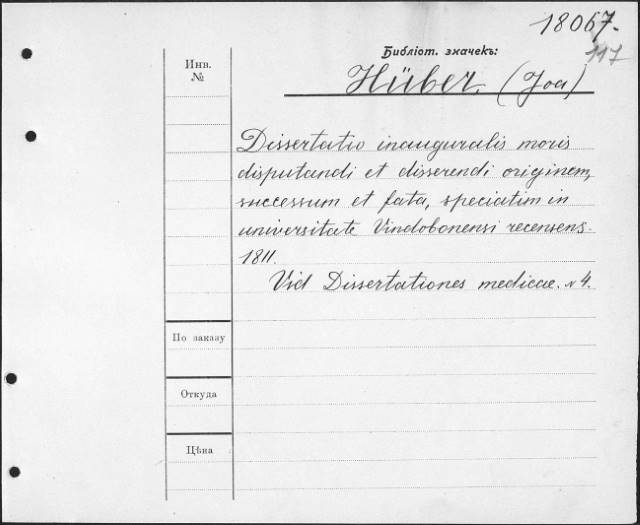 18067.
117
Библіот. значекъ:
Инв.
№
Hüber. (Joa)
Dissertatio inauguralis moris
disputandi et disserendi originem,
successum et fata, speciatim in
universitate Vindobonensi recensens.
1811.
Vid Dissertationes medicae. N 4.
По заказу
Откуда
Цѣна